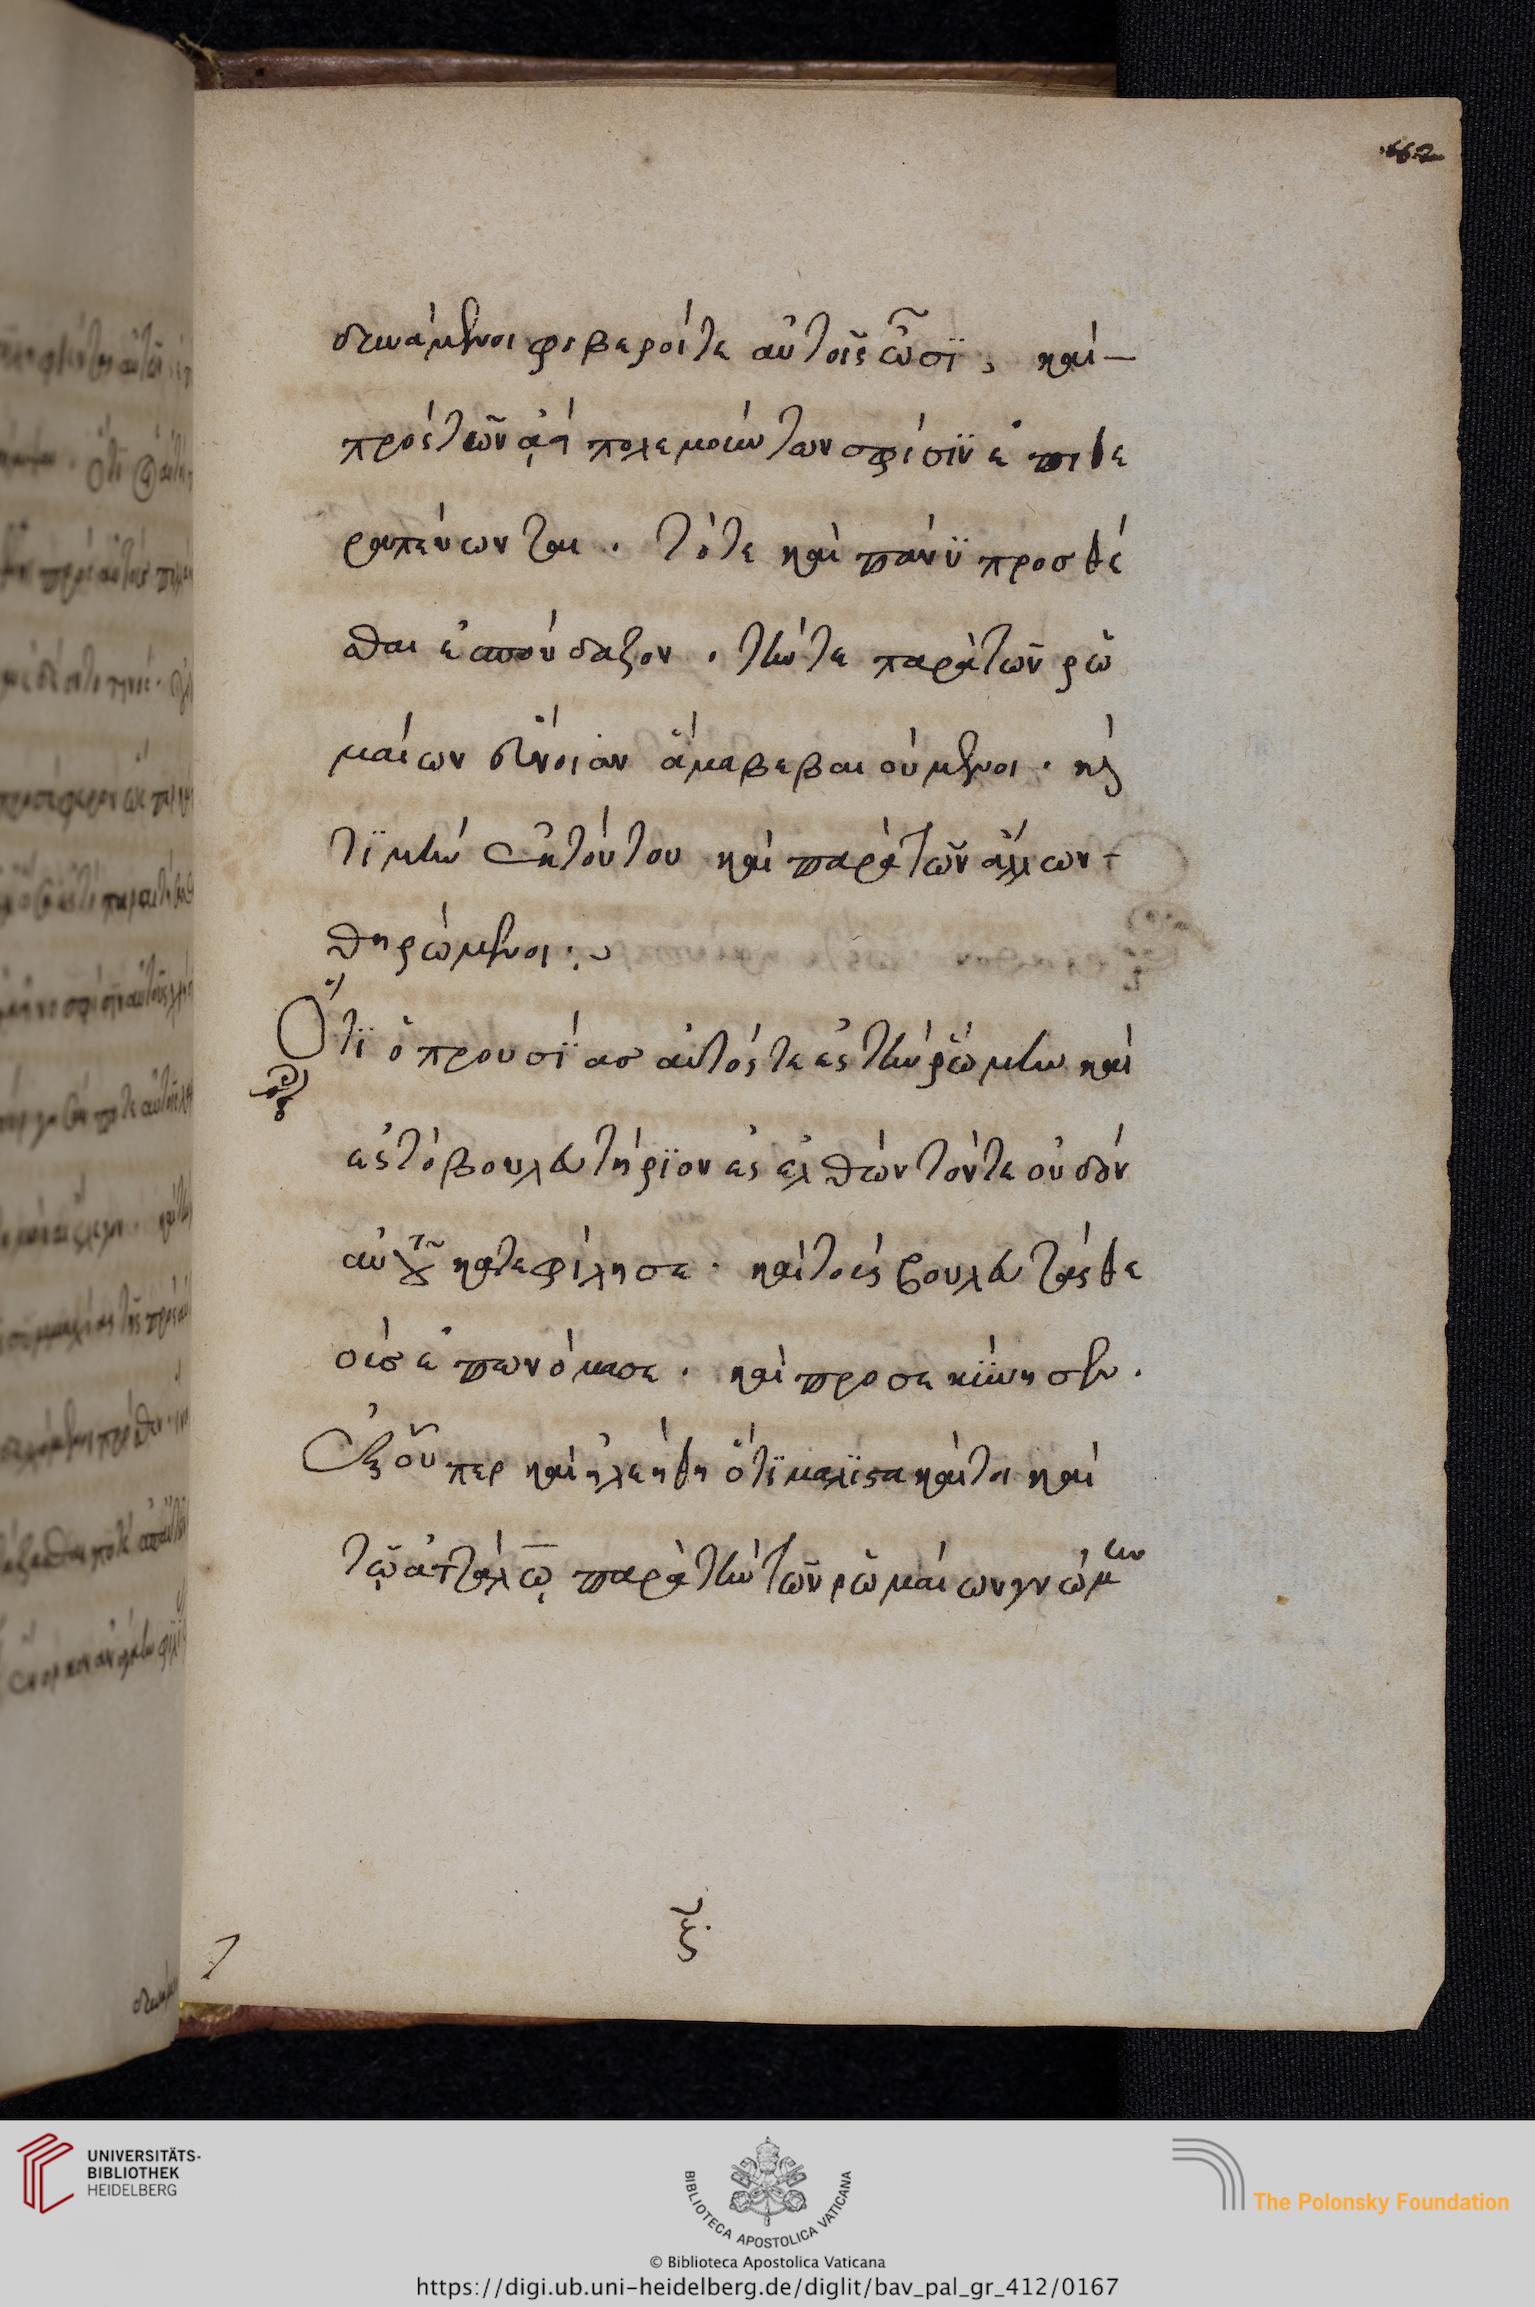 162
δυνάμενοι φοβεροί τε αὐτοῖς ὦσϊ, καὶ
πρὸς τῶν ἀεὶ πολεμούντων σφίσϊν ἐπιθε
ραπεύωνται. τότε καὶ πάνϋ προσθέ
σθαι ἐσπούδαζον. τήν τε παρὰ τῶν ῥω
μαίων εὔνοιαν ἅμα βεβαιούμενοι. καὶ
τϊμὴν ἐκ τούτου καὶ παρὰ τῶν ἄλλων
θηρώμενοι.
Ὅτϊ ὁ προυσϊας αὐτός τε ἐς τὴν ῥώμην καὶ
ἐς τὸ βουλευτήρϊον ἐσελθὼν τόν τε οὐδὸν
αὐτοῦ κατεφίλησε. καὶ τοὺς βουλευτὰς θε
οὺς ἐπωνόμασε. καὶ προσεκϋνησεν.
ἐξ οὗπερ καὶ ἠλεήθη ὅτϊ μαλϊστα καίτοι καὶ
τῷ ἀττάλῳ παρὰ τὴν τῶν ῥωμαίων γνώμην
UNIVERSITÄTS-
BIBLIOTHEK
HEIDELBERG
BIBLIOTECA APOSTOLICA VATICANA
The Polonsky Foundation
© Biblioteca Apostolica Vaticana
https://digi.ub.uni-heidelberg.de/diglit/bav_pal_gr_412/0167